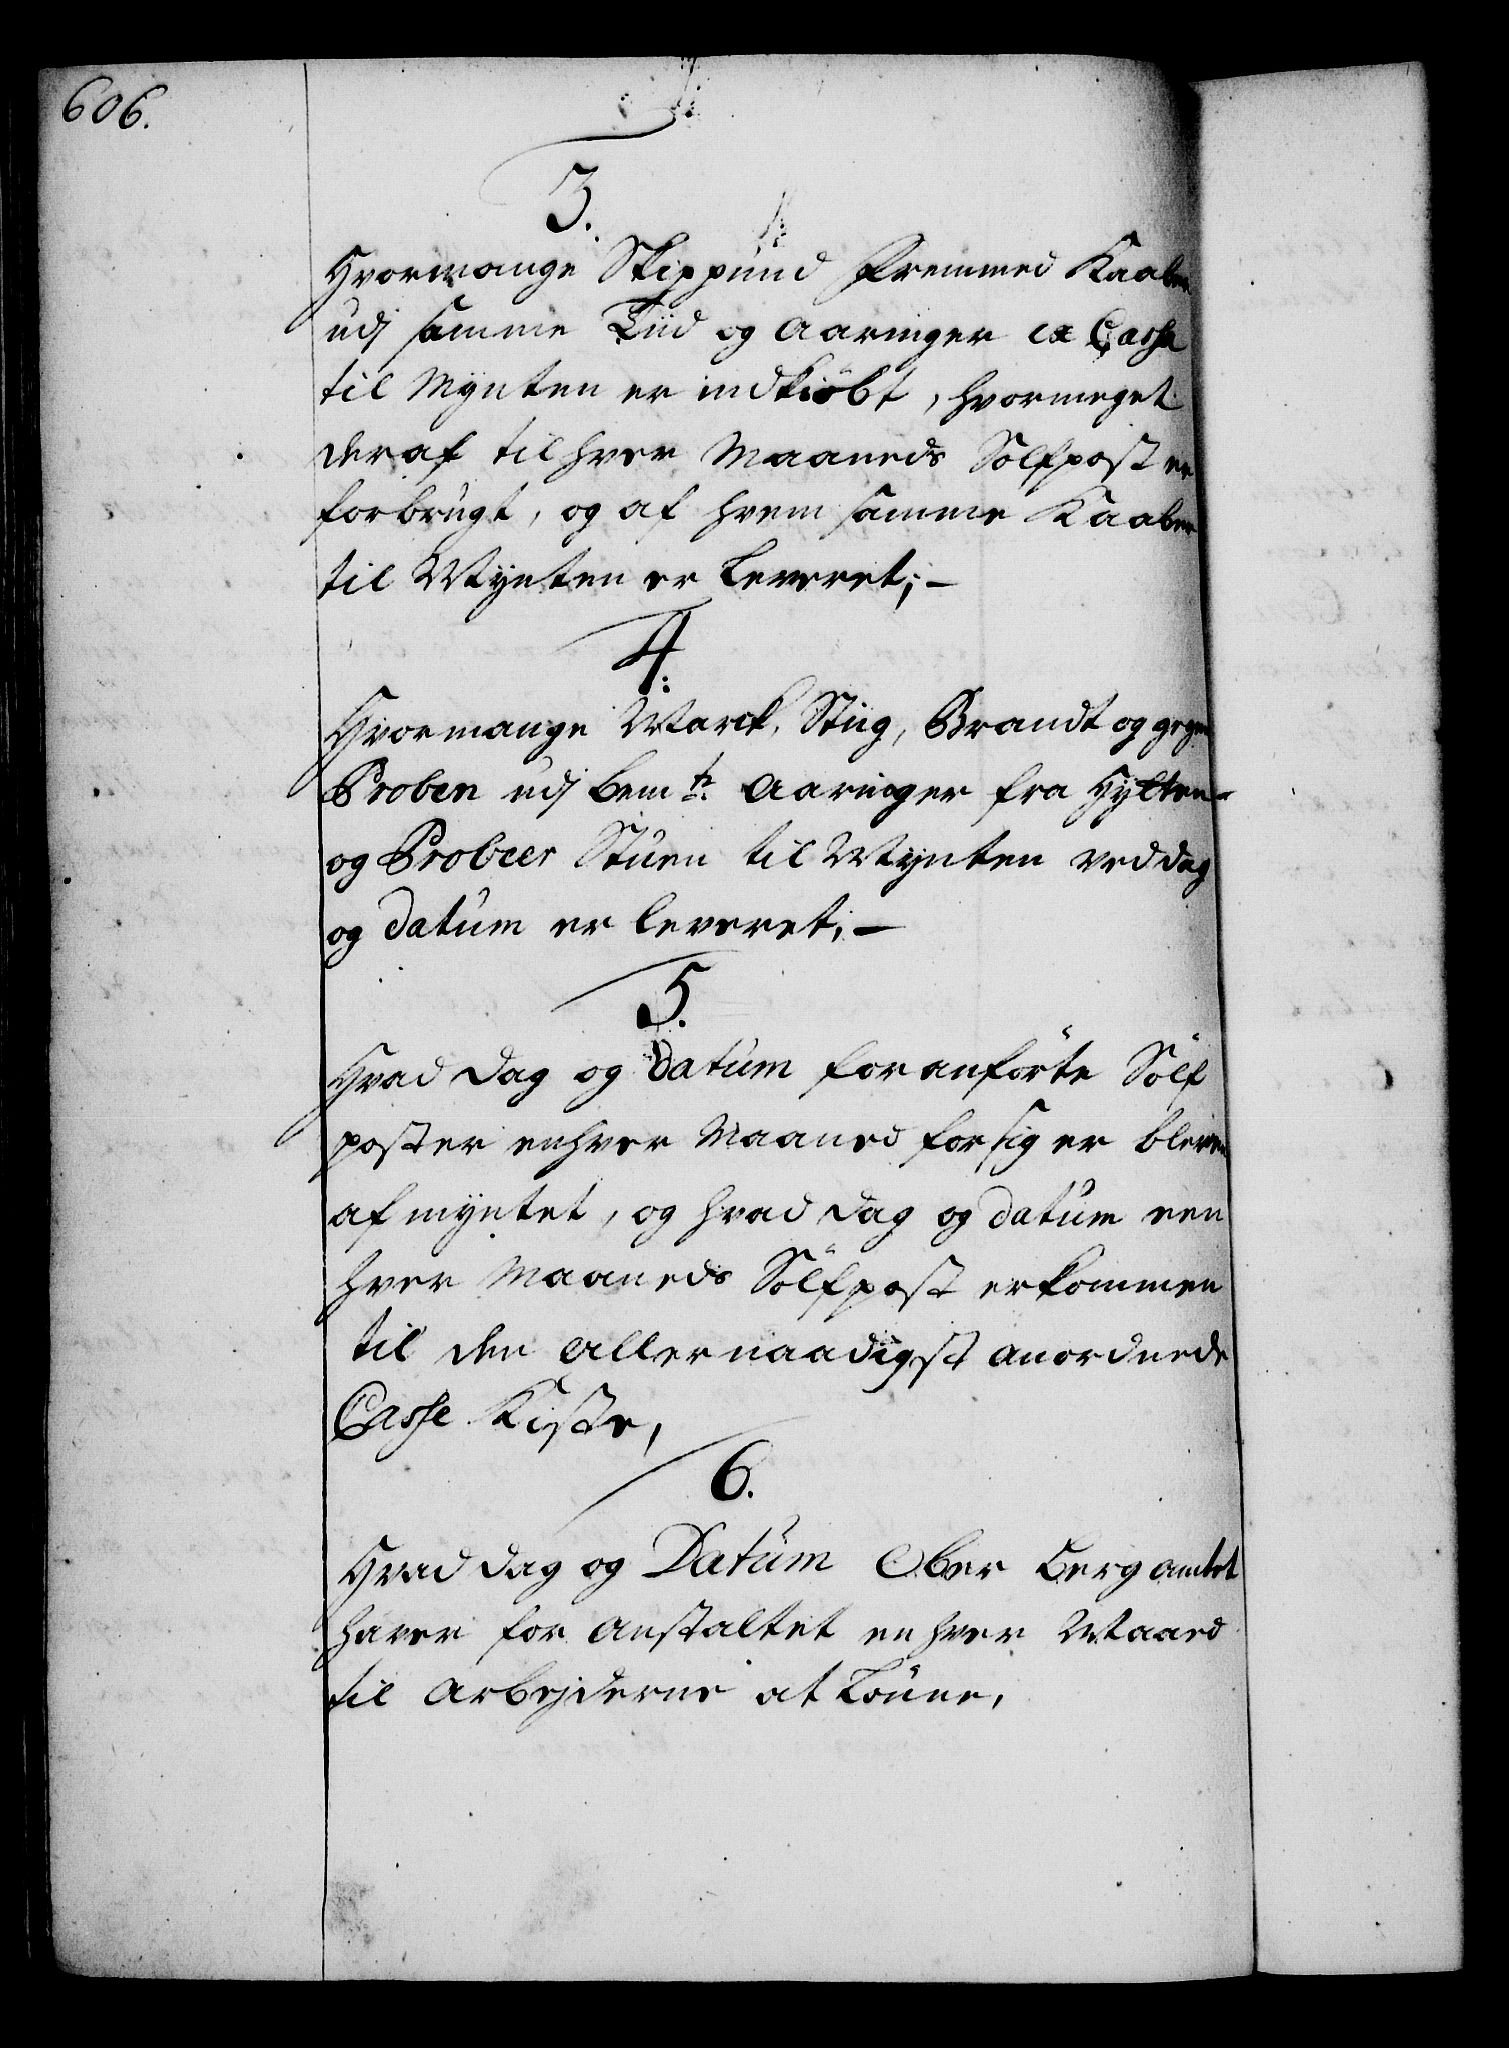 606.
3.
Hvormange Skippund Fremmed Kaaber
udj samme Tiid og Aaringer ex Cassa
til Mynten er indkiöbt, hvormeget
deraf til hver Maaneds Sölfpost er
forbrugt, og af hvem samme Kaaber
til Mynten er Leveret; —
4.
Hvormange Marck, Stüg, Brandt og gegen
Proben udj bemte Aaringer fra Hytten-
og Probeer Stuen til Mynten ved dag
og datum er leveret; —
5.
Hvad dag og Datum foranförte Sölf
poster enhver Maaned for sig er bleven
afmyntet, og hvad dag og datum een
hver Maaneds Sölfpost er kommen
til den allernaadigst anordnede
Casse Kiste,
6.
Hvad dag og Datum Ober Bergamtet
haver for anstaltet en hver Maaned
til Arbejderne at Lönne,